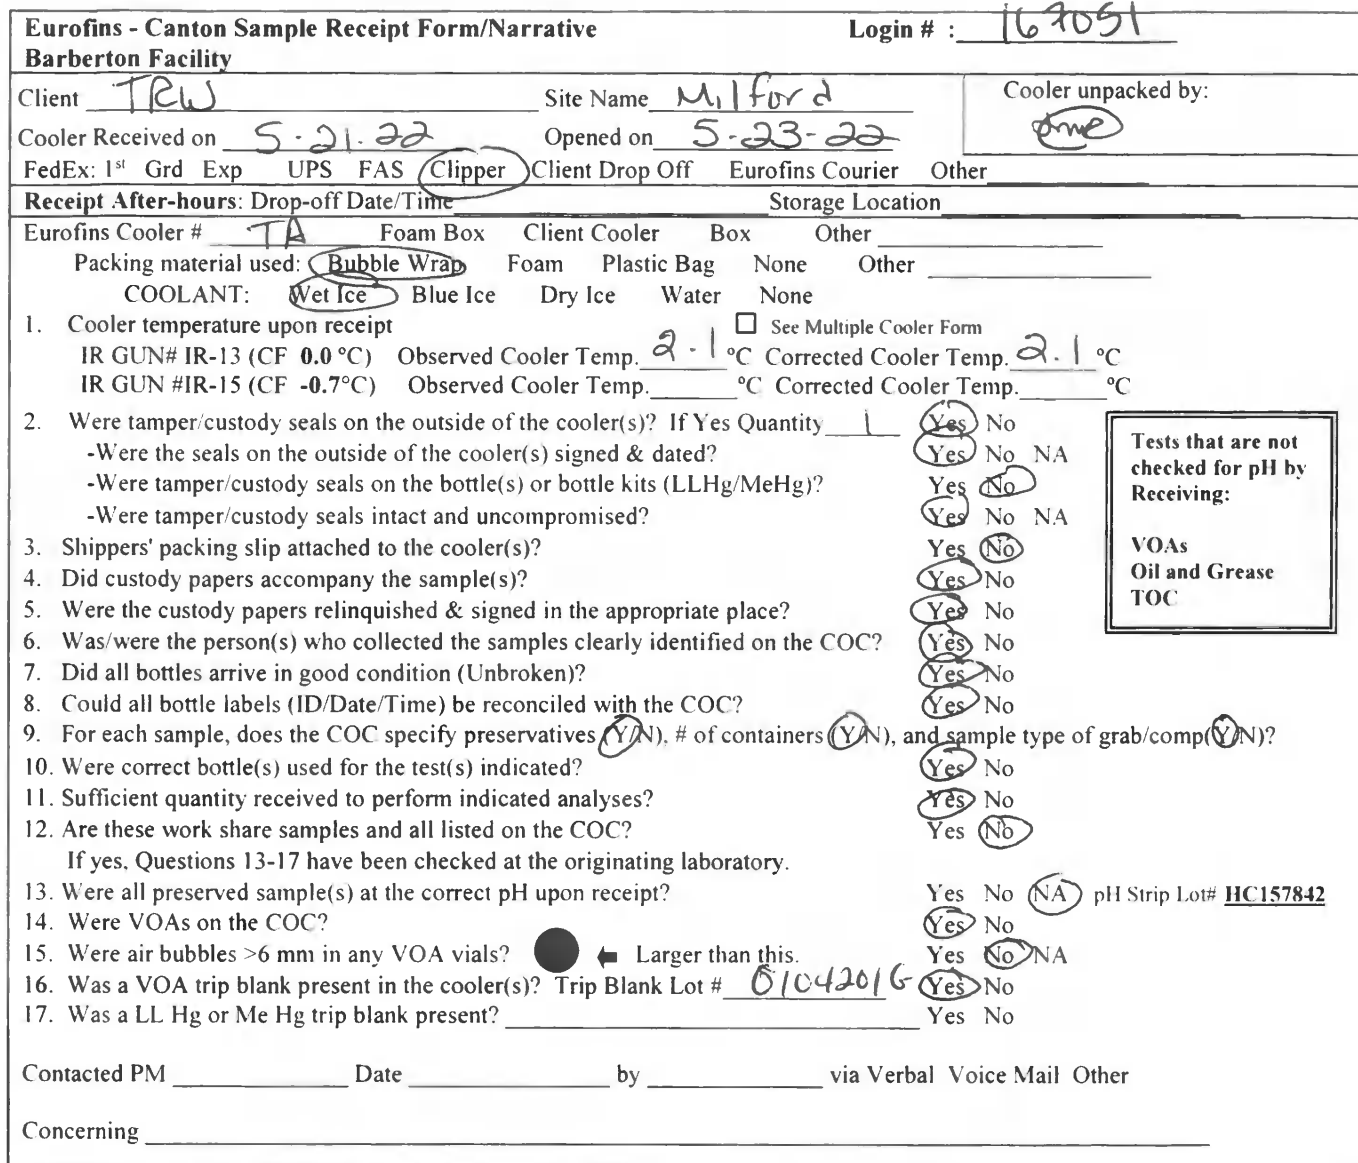 Eurofins - Canton Sample Receipt Form/Narrative Login # : 167051
Barberton Facility
Client TRW Site Name Milford Cooler unpacked by:
Cooler Received on 5-21-22 Opened on 5-23-22
FedEx: 1st Grd Exp UPS FAS Clipper Client Drop Off Eurofins Courier Other
Receipt After-hours: Drop-off Date/Time Storage Location
Eurofins Cooler # TA Foam Box Client Cooler Box Other
Packing material used: Bubble Wrap Foam Plastic Bag None Other
COOLANT: Wet Ice Blue Ice Dry Ice Water None
1. Cooler temperature upon receipt ☐ See Multiple Cooler Form
IR GUN# IR-13 (CF 0.0 °C) Observed Cooler Temp. 2.1 °C Corrected Cooler Temp. 2.1 °C
IR GUN #IR-15 (CF -0.7°C) Observed Cooler Temp. °C Corrected Cooler Temp. °C
2. Were tamper/custody seals on the outside of the cooler(s)? If Yes Quantity 1 Yes No
-Were the seals on the outside of the cooler(s) signed & dated? Yes No NA
-Were tamper/custody seals on the bottle(s) or bottle kits (LLHg/MeHg)? Yes No
-Were tamper/custody seals intact and uncompromised? Yes No NA
3. Shippers' packing slip attached to the cooler(s)? Yes No
4. Did custody papers accompany the sample(s)? Yes No
5. Were the custody papers relinquished & signed in the appropriate place? Yes No
6. Was/were the person(s) who collected the samples clearly identified on the COC? Yes No
7. Did all bottles arrive in good condition (Unbroken)? Yes No
8. Could all bottle labels (ID/Date/Time) be reconciled with the COC? Yes No
Tests that are not
checked for pH by
Receiving:
VOAs
Oil and Grease
TOC
9. For each sample, does the COC specify preservatives (Y/N), # of containers (Y/N), and sample type of grab/comp(Y/N)?
10. Were correct bottle(s) used for the test(s) indicated? Yes No
11. Sufficient quantity received to perform indicated analyses? Yes No
12. Are these work share samples and all listed on the COC? Yes No
If yes, Questions 13-17 have been checked at the originating laboratory.
13. Were all preserved sample(s) at the correct pH upon receipt? Yes No NA pH Strip Lot# HC157842
14. Were VOAs on the COC? Yes No
15. Were air bubbles >6 mm in any VOA vials? Larger than this. Yes No NA
16. Was a VOA trip blank present in the cooler(s)? Trip Blank Lot # 0104201G Yes No
17. Was a LL Hg or Me Hg trip blank present? Yes No
Contacted PM Date by via Verbal Voice Mail Other
Concerning